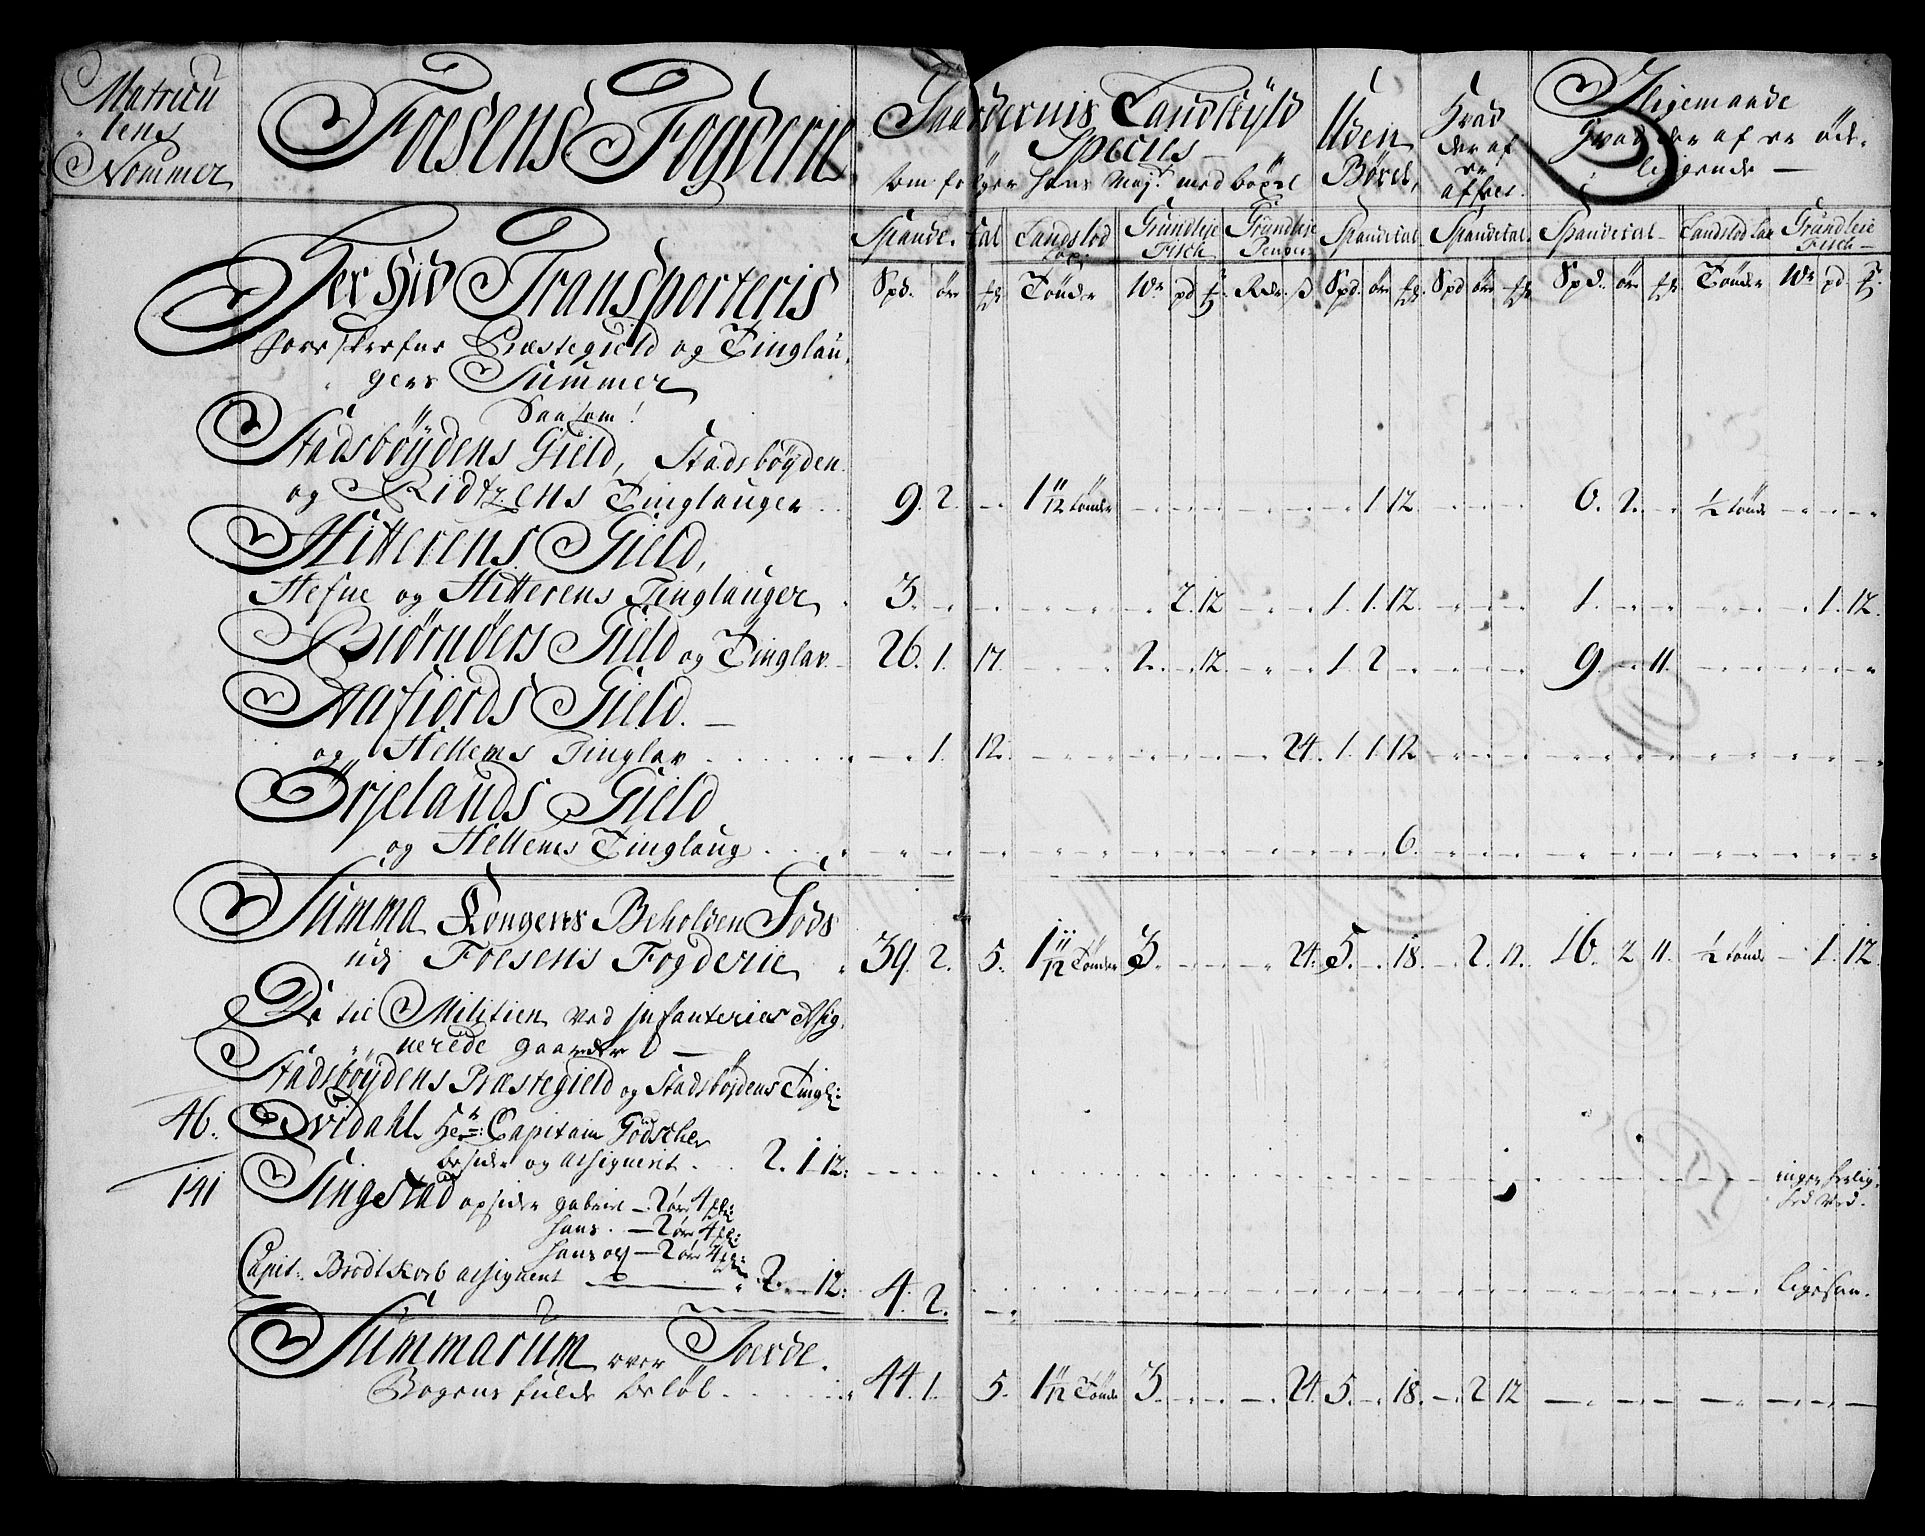 Matricu
lens
Nommer
Foesens Fogderie
Gaardernis Landskyld
Species
som følger hans Mayt. med bøxel
Uden
Bøxel,
Hvad
der af
er
affæl.
Iligemaade
hvad der af er øde-
liggende —
Spande. tal
Landslod
Grundleje Fisch
Grundleje Penger
Spandetal
Spandetal
Spandetal
Landslod
Grundleie Fisch
Spd. ører Tønder Wr pd Rdr. ß Spd. ører Spd ører Spd. ører Tønder Wr pd
Her hid Transporteris
foreskrefne Præstegield og Tinglau-
gers Summer
Saasom!
Stadsbøydens Gield, Stadsbøyden
og Ridtzens Tinglauger .. 9. 2. - 1 11/12 tønder 1 12. 6. 2. ½ tønde
Hitterens Gield,
Hefne og Hitterens Tinglauger 3. 2. 12 1. 1. 12. 1. 1. 12.
Biørnøers Gield og Tinglav 26. 1. 17. 2. 12. 1. 2 9. 11.
Aafiords Gield. —
og Hellems Tinglav 1. 12. 24. 1. 1. 12
Ørjelands Gield
og Hellems Tinglaug 6.
Summa Kongens Beholden Gods
udj Foesens Fogderie 39. 2. 5. 1 11/12 Tønder 3. 24. 5. 18. 2. 12. 16. 2 11. ½ tønde 1. 12.
De til Militien ved Infanteriet Assig-
nerede gaarder —
Stadsbøydens Præstegield og Stadsbøjdens Tingl:
46. Hr: Capitain
besider og assignerit 2. 1 12:
141 Singstad opsider gabriel — 2 ører 4
hans. — 2 ører 4
hans ols — 2 ører 4
ingen herlig-
hed ved.
Capit: Brodtkorb assignert 2. 12: 4. 2. ligesaa.
Summarum over Joerde-
Bogens fulde beløb 44. 1. 5. 1 11/12 Tønde 3. 24. 5. 18. 2 12